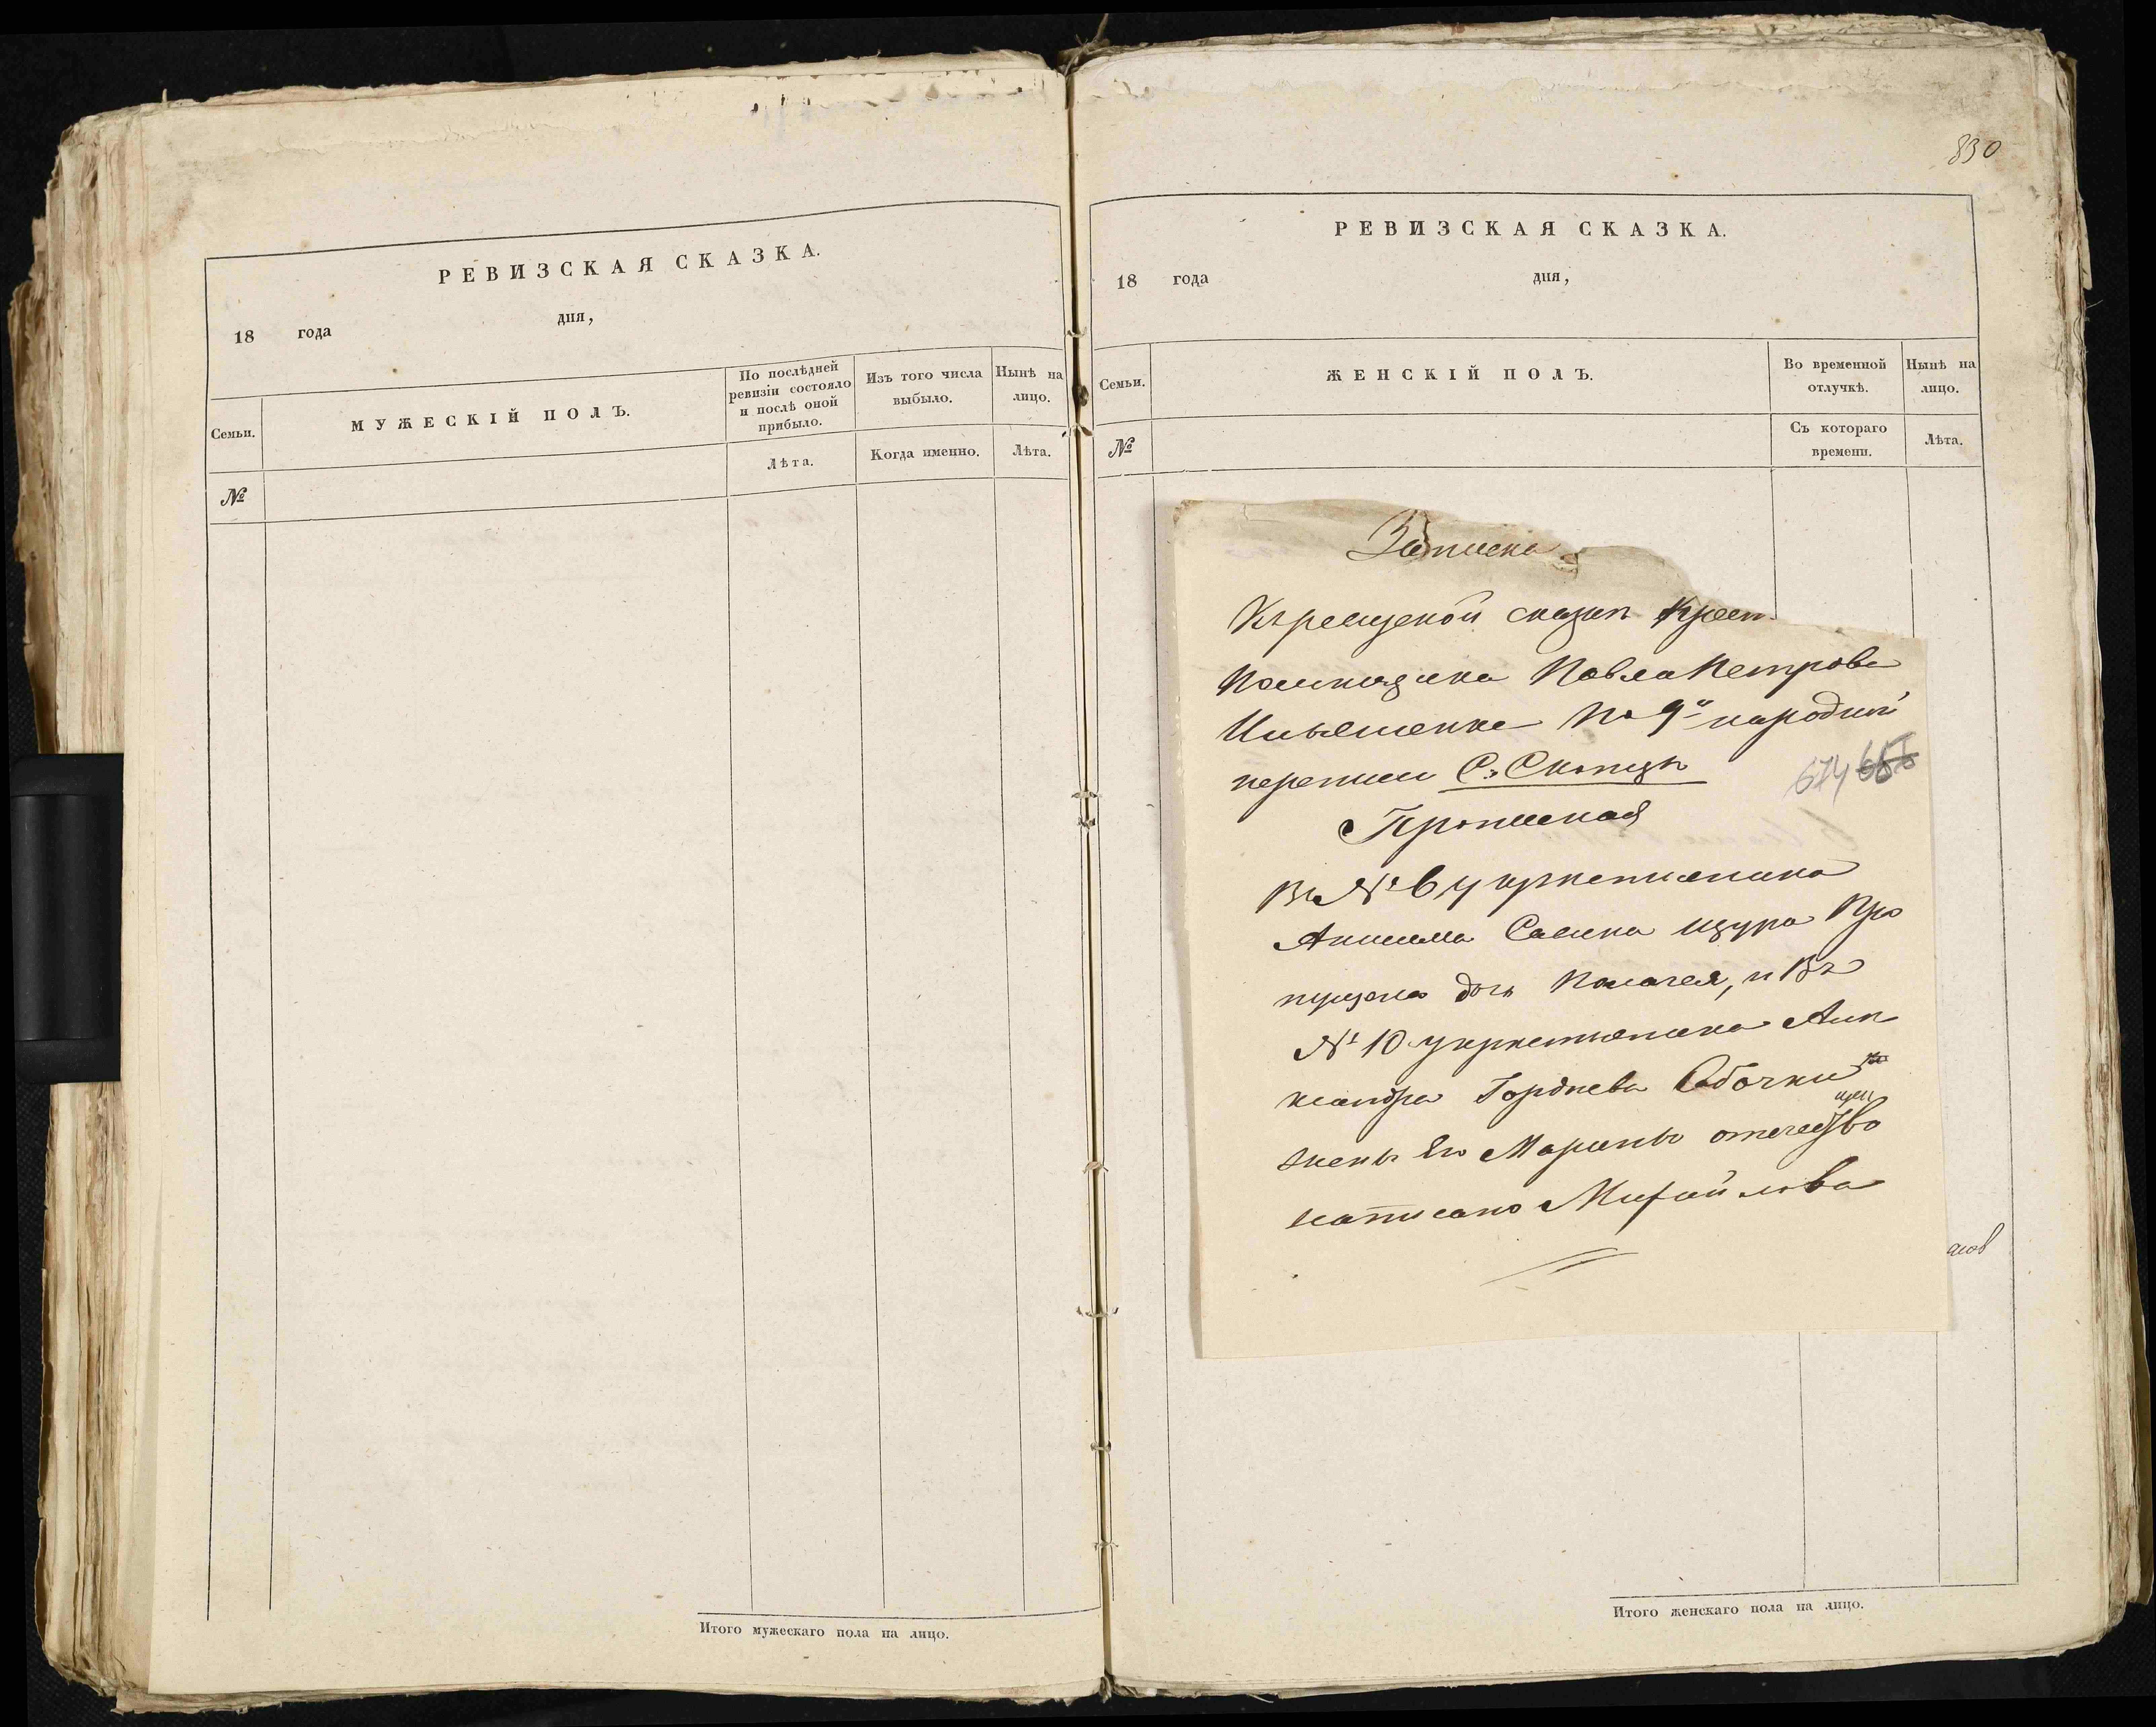 РЕВИЗСКАЯ СКАЗКА.
18 года дня,
Семьи.
МУЖЕСКІЙ ПОЛЪ.
По послѣдней
ревизіи состояло
и послѣ оной
прибыло.
Изъ того числа
выбыло.
Нынѣ на
лицо.
№
Лѣта.
Когда именно.
Лѣта.
Итого мужескаго пола на лицо.
830
РЕВИЗСКАЯ СКАЗКА.
18 года дня,
Семьи.
ЖЕНСКІЙ ПОЛЪ.
Во временной
отлучкѣ.
Нынѣ на
лицо.
№
Съ котораго
времени.
Лѣта.
Записка
Къ сказкѣ крест
Помѣщика Павла Петрова
Ильяшенка по 9й народной
переписи С. Скопцъ
674 655
Прописка
Въ № 6 у крестьянина
Анисима Савина Щура про
пущена дочь Пелагея, и Въ
№ 10 у крестьянина Алек
сандра Гордѣева
жены его Марины отечество
написано Михайлова
Итого женскаго пола на лицо.